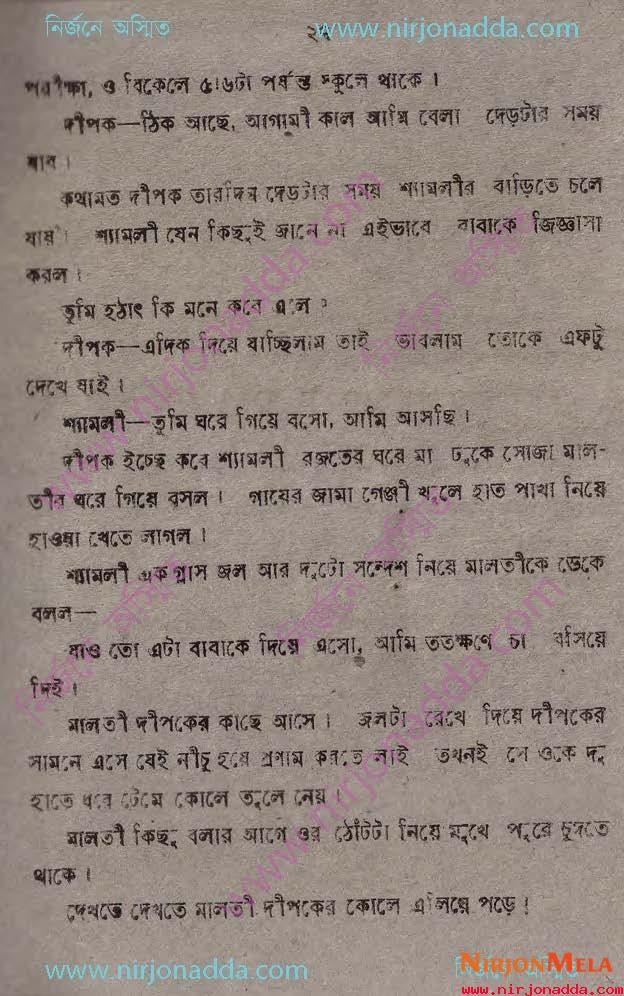 নির্জনে অস্মিত ২৭ www.nirjonadda.com
পরীক্ষা, ও বিকেলে ৫।৬টা পর্যন্ত স্কুলে থাকে।
দীপক—ঠিক আছে, আগামী কাল আমি বেলা দেড়টার সময়
যাব।
কথামত দীপক তারদিন দেড়টার সময় শ্যামলীর বাড়িতে চলে
যায়। শ্যামলী যেন কিছুই জানে না এইভাবে বাবাকে জিজ্ঞাসা
করল।
তুমি হঠাৎ কি মনে করে এলে?
দীপক—এদিক দিয়ে যাচ্ছিলাম তাই ভাবলাম তোকে একটু
দেখে যাই।
শ্যামলী—তুমি ঘরে গিয়ে বসো, আমি আসছি।
দীপক ইচ্ছে করে শ্যামলী রজতের ঘরে মা ঢুকে সোজা মাল-
তীর ঘরে গিয়ে বসল। গায়ের জামা গেঞ্জী খুলে হাত পাখা নিয়ে
হাওয়া খেতে লাগল।
শ্যামলী এক গ্লাস জল আর দুটো সন্দেশ নিয়ে মালতীকে ডেকে
বলল—
যাও তো এটা বাবাকে দিয়ে এসো, আমি ততক্ষণে চা বসিয়ে
দিই।
মালতী দীপকের কাছে আসে। জলটা রেখে দিয়ে দীপকের
সামনে এসে যেই নীচু হয়ে প্রণাম করতে নাই তখনই সে ওকে দু
হাতে ধরে টেমে কোলে তুলে নেয়।
মালতী কিছু বলার আগে ওর ঠোঁটটা নিয়ে মুখে পুরে চুষতে
থাকে।
দেখতে দেখতে মালতী দীপকের কোলে এলিয়ে পড়ে!
www.nirjonadda.com নির্জনে অস্মিত
NIRJONMELA
www.nirjonadda.com